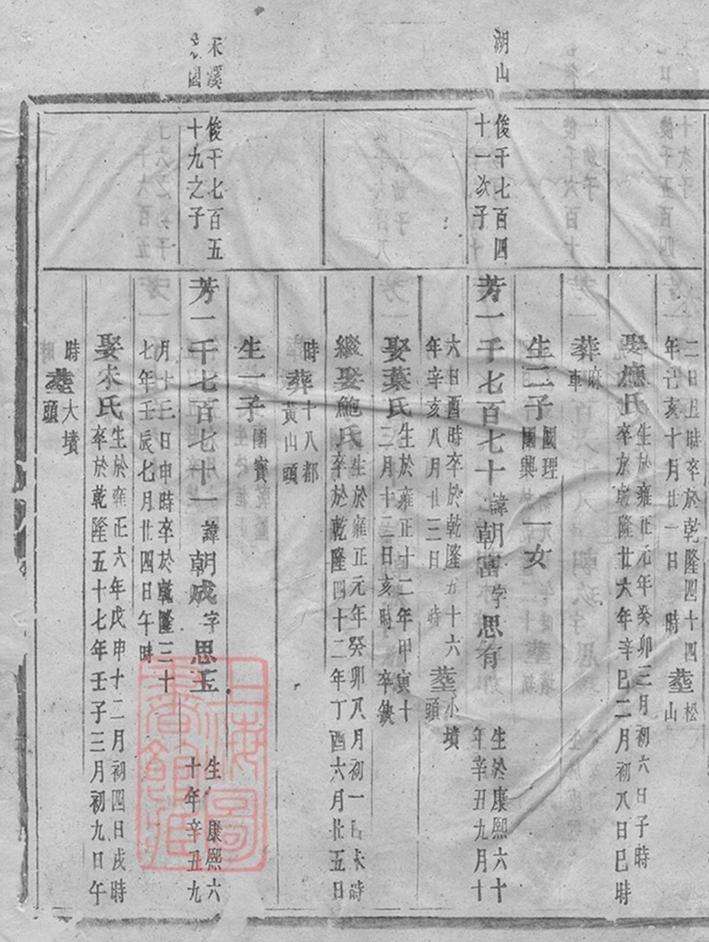 二日丑時卒於乾隆四十四
年己亥十月廿一日 時塟松
山
娶應氏生於雍正元年癸卯三月初六日子時
卒於乾隆廿六年辛巳二月初八日巳時
葬麻
車
生二子國理
國興
一女
湖山
俊千七百四
十一次子
芳一千七百七十諱朝富字思有生於康熙六十
年辛丑九月十
六日酉時卒於乾隆五十六
年辛亥八月廿三日 時塟小墳
頭
娶葉氏生於雍正十二年甲寅十
二月十三日亥時卒缺
繼娶鮑氏生於雍正元年癸卯八月初一日未時
卒於乾隆四十二年丁酉六月廿五日
時葬十八都
黃山頭
生一子國寶
禾溪
俊千七百五
十九之子
芳一千七百七十一諱朝成字思玉生 康熙六
十年辛丑九
月十三日申時卒於乾隆三十
七年壬辰七月廿四日午時
娶宋氏生於雍正六年戊申十二月初四日戌時
卒於乾隆五十七年壬子三月初九日午
時塟大墳
頭
上海圖
書館藏